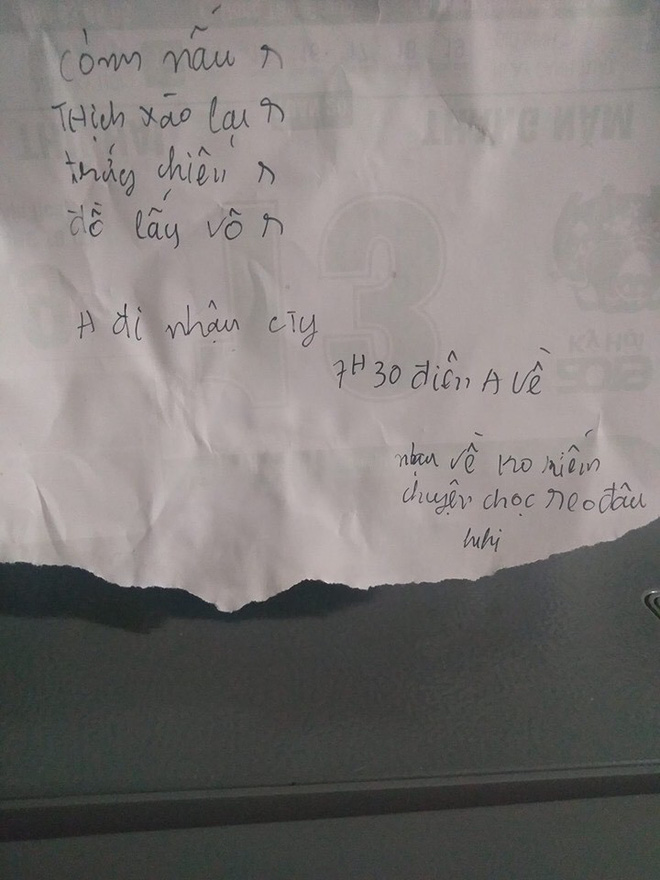 Cơm nấu r
Thịch xào lại r
trứng chiên r
đồ lấy vô r
A đi nhậu cty
7H30 điện A về
nhậu về ko kiếm
chuyện chọc neo đâu
hihi
13